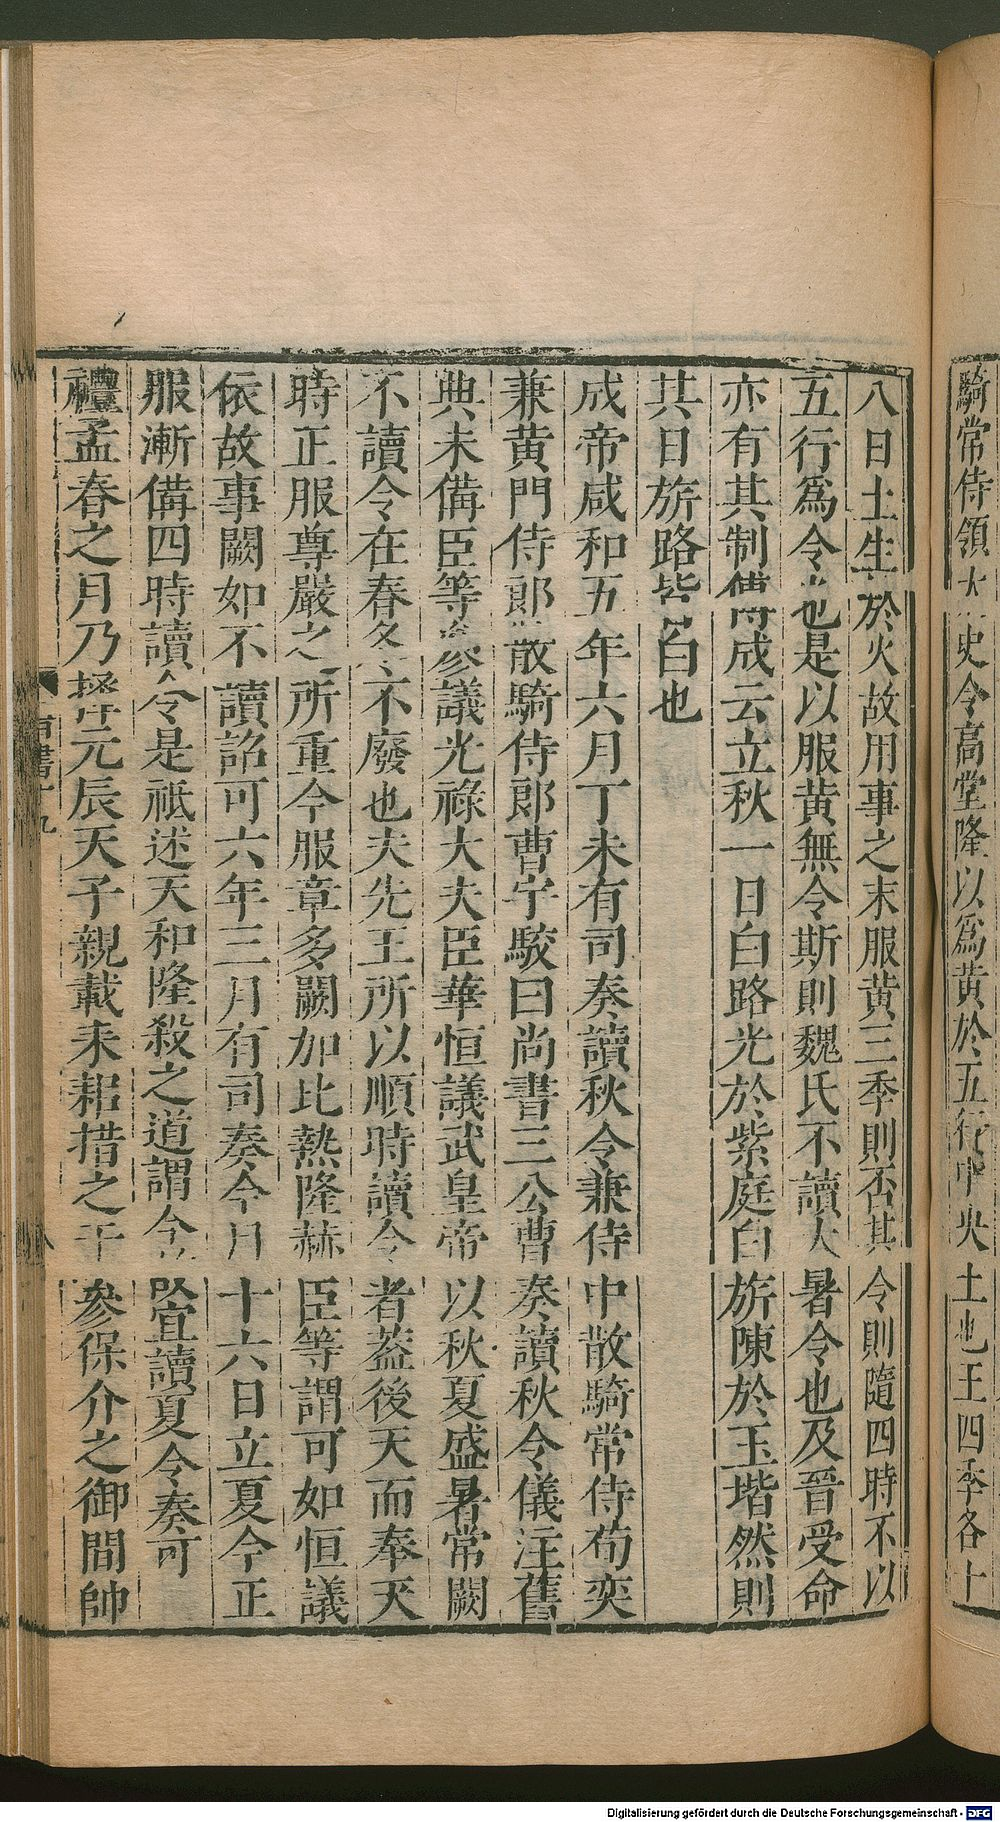 騎常侍領太史令高堂隆以爲黃於五行中央土也王四季各十
八日土生於火故用事之末服黃三季則否其令則隨四時不以
五行爲令也是以服黃無令斯則魏氏不讀大暑令也及晉受命
亦有其制傅咸云立秋一日白路光於紫庭白旂陳於玉堦然則
其日旂路皆白也
成帝咸和五年六月丁未有司奏讀秋令兼侍中散騎常侍荀奕
兼黃門侍郎散騎侍郎曹宇駮曰尚書三公曹奏讀秋令儀注舊
典未備臣等參議光祿大夫臣華恒議武皇帝以秋夏盛暑常闕
不讀令在春冬不廢也夫先王所以順時讀令者蓋後天而奉天
時正服尊嚴之所重今服章多闕加比熱隆赫臣等謂可如恒議
依故事闕如不讀詔可六年三月有司奏今月十六日立夏今正
服漸備四時讀令是祗述天和隆殺之道謂今故宜讀夏令奏可
禮孟春之月乃擇元辰天子親載耒耜措之于參保介之御間帥
晉書十九
八
Digitalisierung gefördert durch die Deutsche Forschungsgemeinschaft - DFG